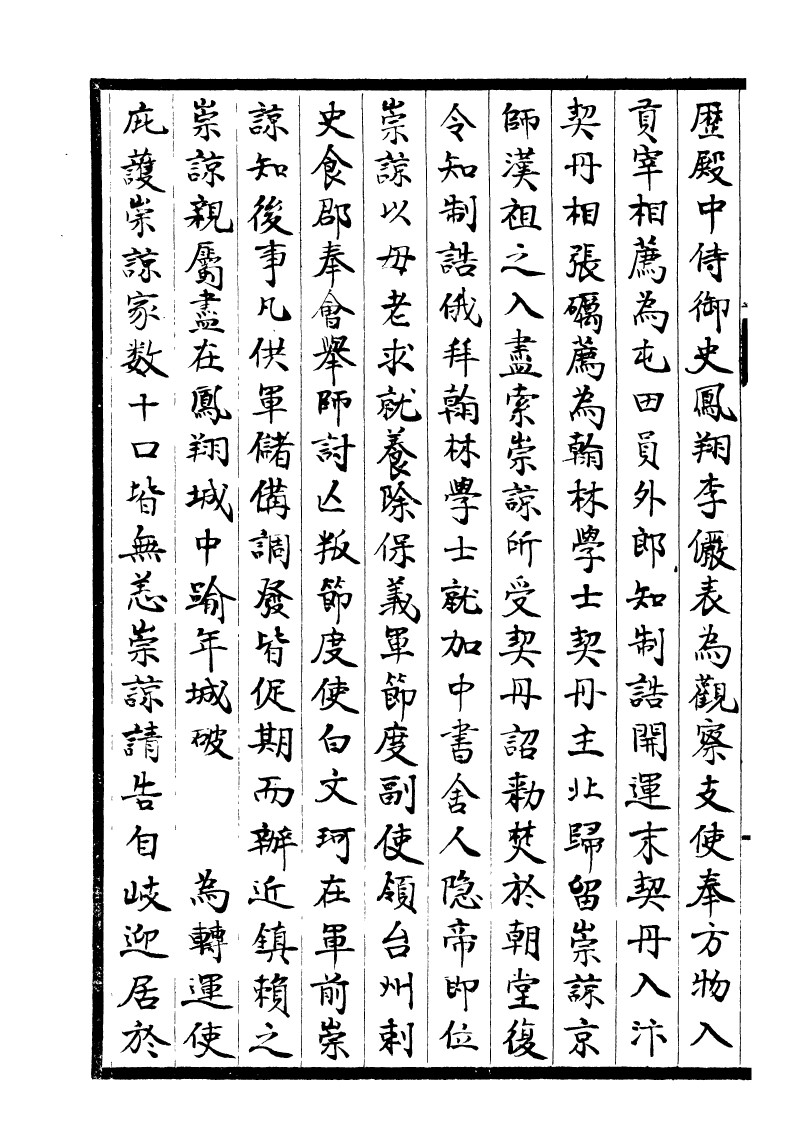 歷殿中侍御史鳳翔李儼表為觀察支使奉方物入
貢宰相薦為屯田員外郎知制誥開運末契丹入汴
契丹相張礪薦為翰林學士契丹主北歸留崇諒京
師漢祖之入盡索崇諒所受契丹詔勑焚於朝堂復
令知制誥俄拜翰林學士就加中書舍人隐帝即位
崇諒以母老求就養除保義軍節度副使領台州刺
史食郡奉會舉師討亾叛節度使白文珂在軍前崇
諒知後事凡供軍儲備調發皆促期而辦近鎮賴之
崇諒親屬盡在鳳翔城中踰年城破　　為轉運使
庇護崇諒家数十口皆無恙崇諒請告自岐迎居於